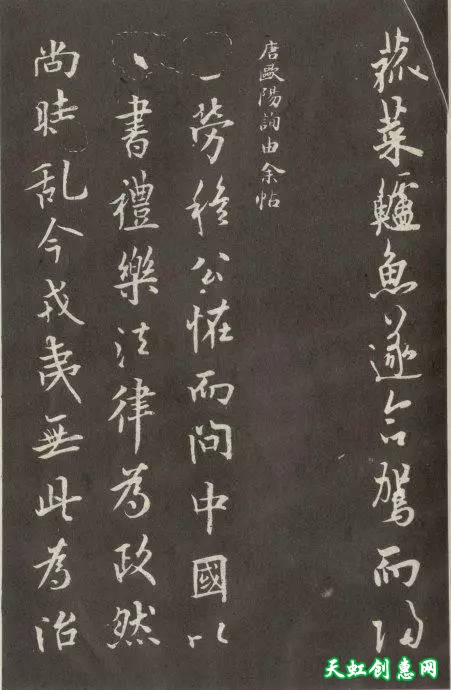 菰菜鱸魚遂命駕而歸
唐歐陽詢由余帖
勞穆公怪而問中國以
書禮樂法律為政然
尚時乱今戎夷無此為治
天虹创意网